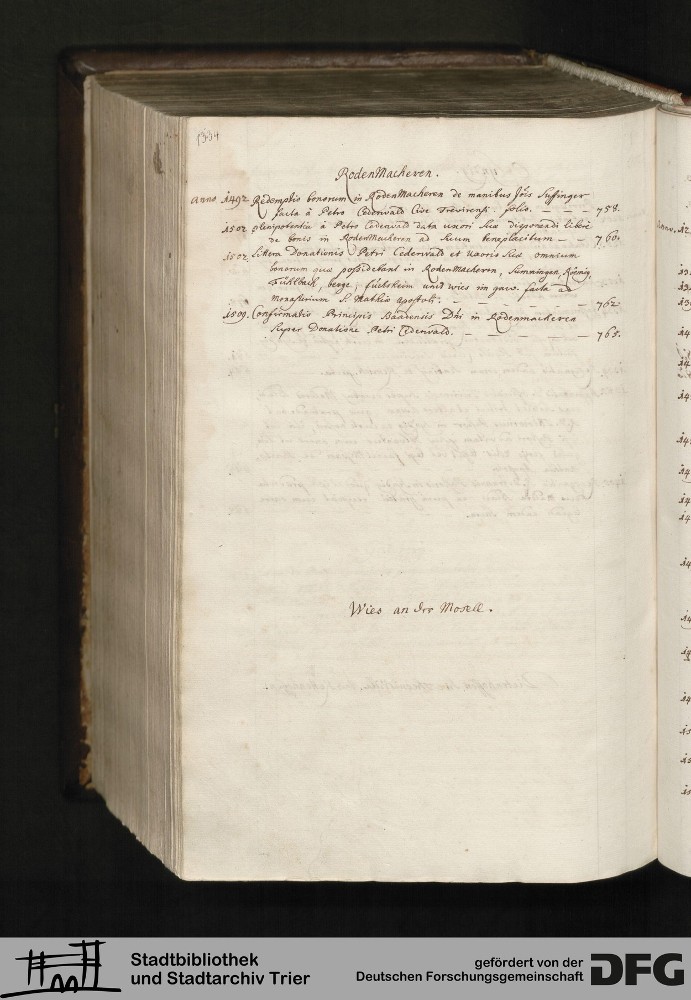 1334
RodenMacheren.
Anno 1492. Redemptio bonorum in RodenMacheren de manibus Jois Suffinger
facta à Petro Cederwald Cive Trevirensi. folio. — — — 758.
1507. plenipotentia à Petro Cederwald data uxori suæ disponendi liberè
de bonis in RodenMacheren ad suum beneplacitum — — 760.
1507. Littera Donationis Petri Cederwald et Uxoris suæ omnium
bonorum quæ possidebant in RodenMacheren, Simmingen, König,
Fühlbach, berge, fuchsheim undt wies im gaw. facta ad
Monasterium S. Mathiæ apostoli. — — — — — — 762.
1509. Confirmatio Principis Baadensis Dni in Rodenmacheren
super Donatione Petri Cederwald. — — — — — 765.
Wies an der Mosell.
Stadtbibliothek
und Stadtarchiv Trier
gefördert von der
Deutschen Forschungsgemeinschaft
DFG